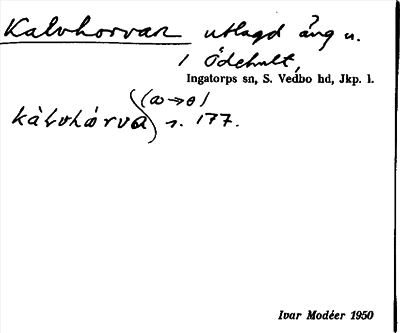 Kalvhorvan utlagd äng u.
1 Ödehult,
Ingatorps sn, S. Vedbo hd, Jkp. l.
(ɷ→ɵ)
kàlvhɷrva s. 177.
Ivar Modéer 1950